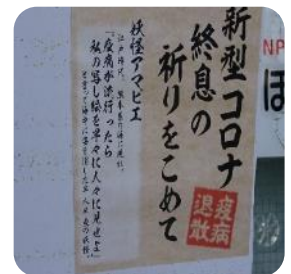 新型コロナ
終息の
祈りをこめて
疫病
退散
妖怪アマビエ
「疫病が流行ったら
私の写し絵を早々に人々に見せよ」
NP
ほ